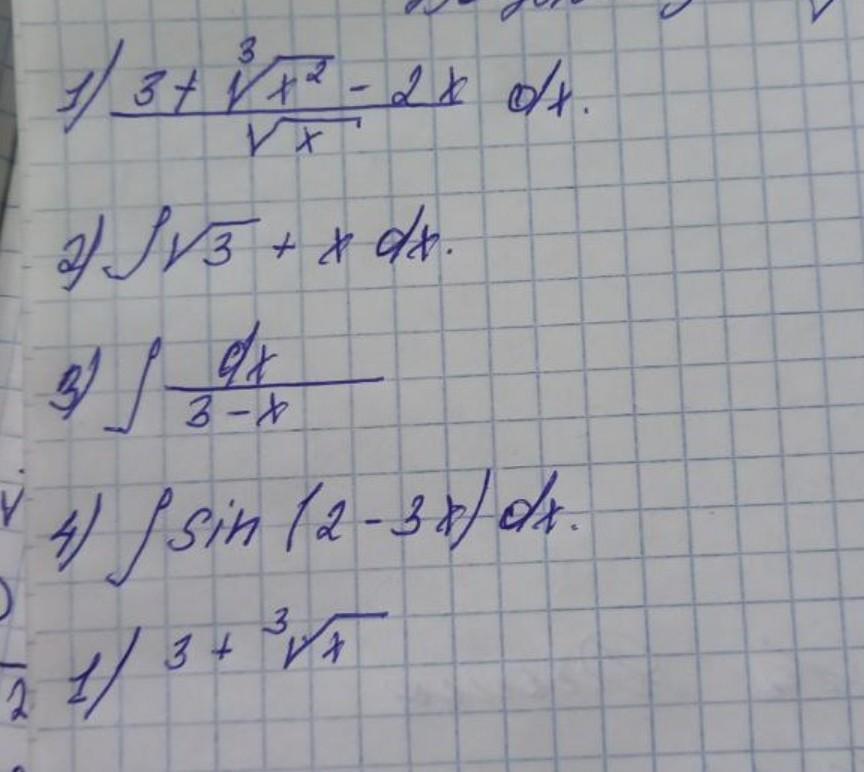 1) (3 + ∛x² - 2x)/√x dx.
2) ∫√3 + x dx.
3) ∫ dx/(3 - x)
4) ∫ sin (2 - 3x) dx.
1) 3 + ∛x